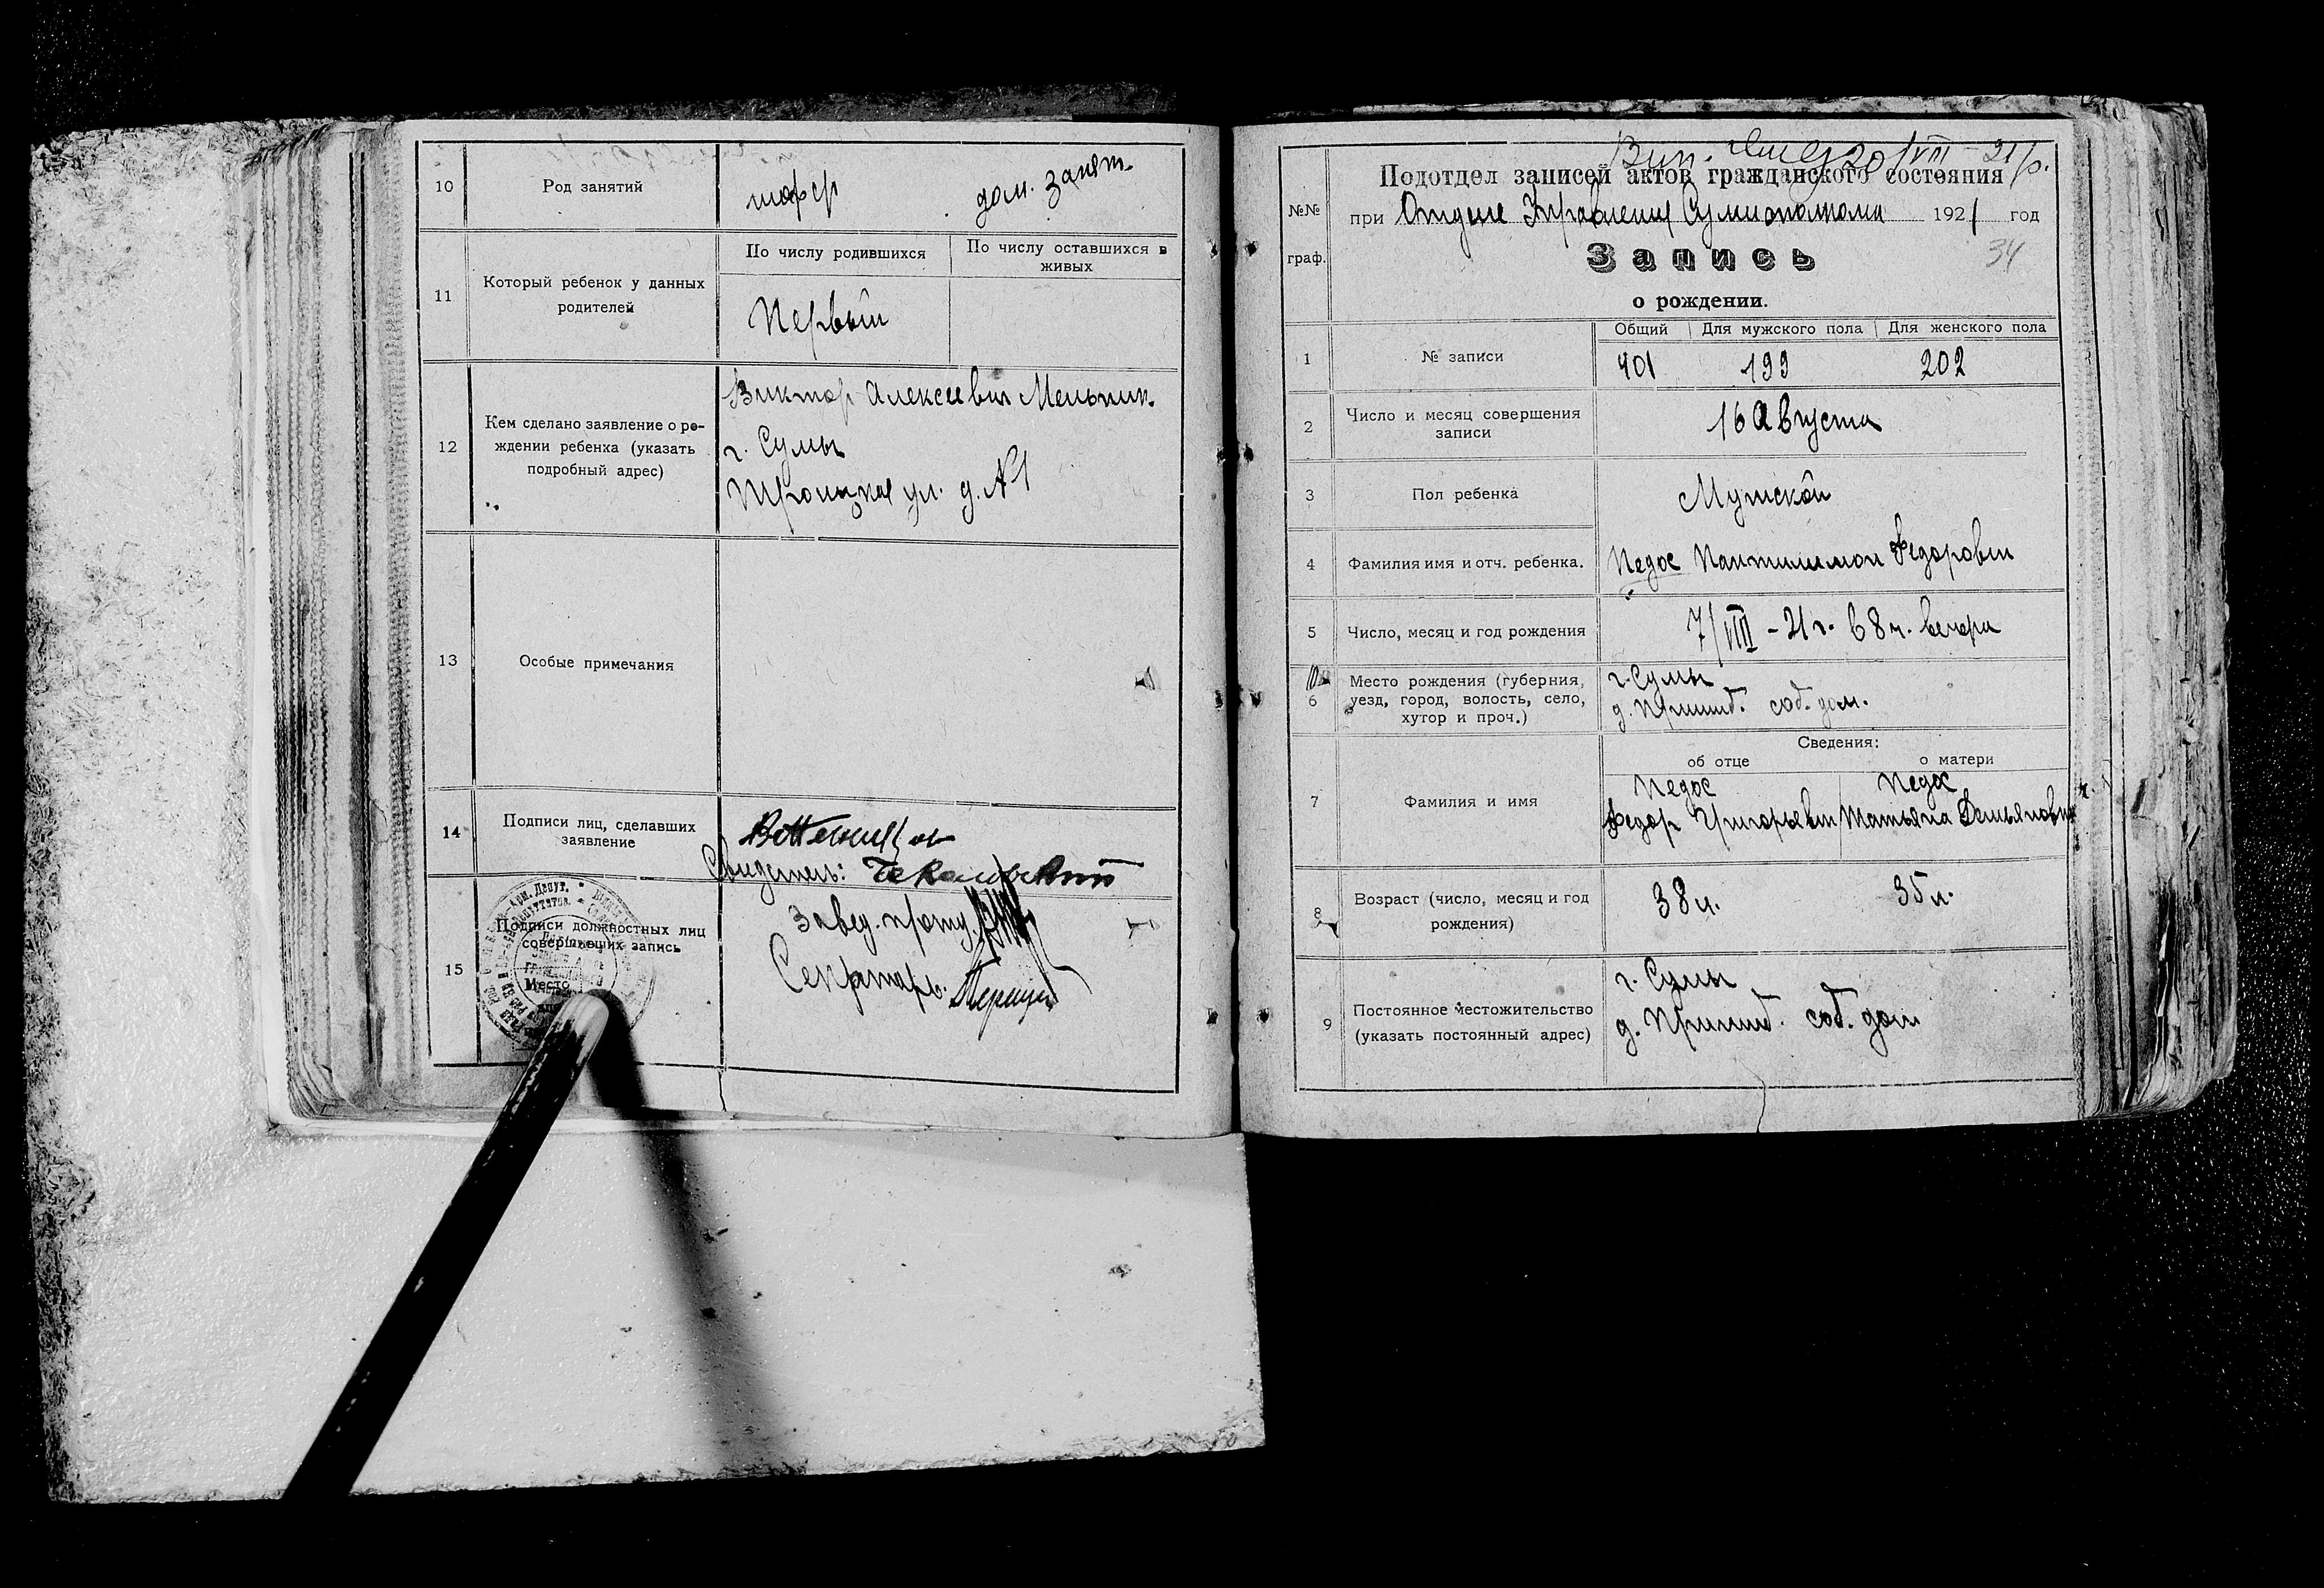 10
Род занятий
шофер
дом. занят.
11
Который ребенок у данных
родителей
По числу родившихся
По числу оставшихся в
живых
Первый
12
Кем сделано заявление о ро-
ждении ребенка (указать
подробный адрес)
Виктор Алексеевич Мельник
г. Сумы
Троицкая ул. д. №1
13
Особые примечания
14
Подписи лиц, сделавших
заявление
Свидетель:
15
Подписи должностных лиц
совершивших запись
Место
Завед.
Секретарь.
20/VIII - 21 р.
№№
граф.
Подотдел записей актов гражданского состояния
при Отделе Управления 1921 год
34
Запись
о рождении.
1
№ записи
Общий
Для мужского пола
Для женского пола
401
199
202
2
Число и месяц совершения
записи
16 Августа
3
Пол ребенка
Мужской
4
Фамилия имя и отч. ребенка.
Недос Пантилимон Федорович
5
Число, месяц и год рождения
7/VIII - 21 г. в 8 ч. вечера
6
Место рождения (губерния,
уезд, город, волость, село,
хутор и проч.)
г. Сумы
соб. дом.
7
Фамилия и имя
Сведения:
об отце
о матери
Недос
Федор Григорьевич
Недос
Татьяна Демьяновна
8
Возраст (число, месяц и год
рождения)
38 л.
35 л.
9
Постоянное местожительство
(указать постоянный адрес)
г. Сумы
соб. дом